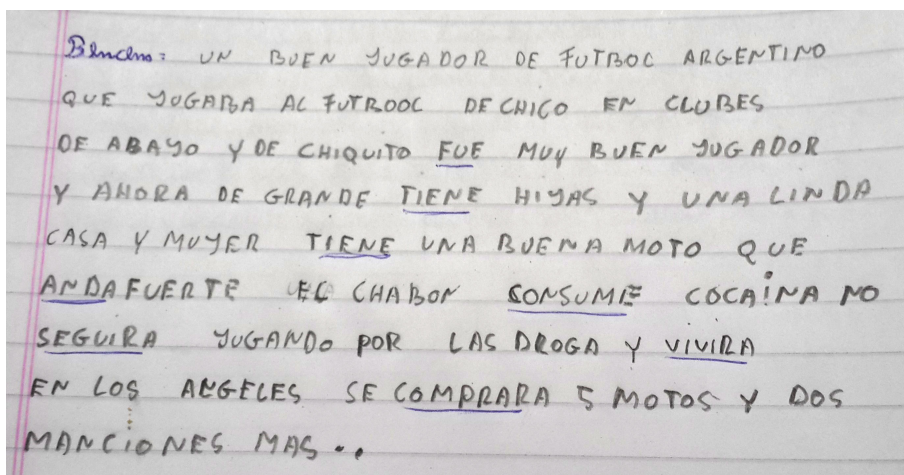 UN BUEN YUGADOR DE FUTBOC ARGENTINO
QUE YOGABA AC FUTBOOC DE CHICO EN CLUBES
DE ABAYO Y DE CHIQUITO FUE MUY BUEN YUGADOR
Y AHORA DE GRANDE TIENE HIYAS Y UNA LINDA
CASA Y MUYER TIENE UNA BUENA MOTO QUE
ANDA FUERTE EC CHABON CONSUME COCAINA NO
SEGUIRA YUGANDO POR LAS DROGA Y VIVIRA
EN LOS ANGELES SE COMPRARA 5 MOTOS Y DOS
MANCIONES MAS ..